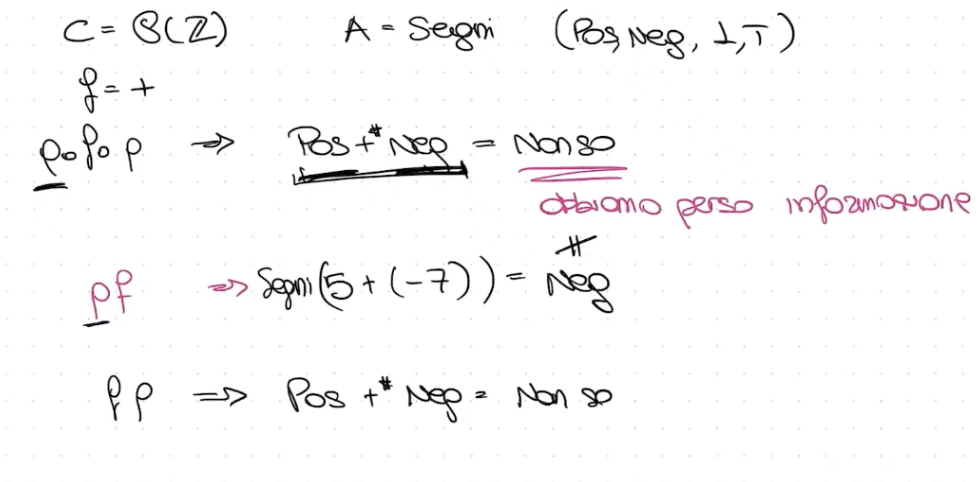 C = ℘(Z) A = Segni (Pos, Neg, ⊥, T)
f = +
ρ∘f∘ρ ⇒ Pos +# Neg = Non so
abbiamo perso informazione
ρf ⇒ Segni(5 + (-7)) = Neg
≠
fρ ⇒ Pos +# Neg = Non so